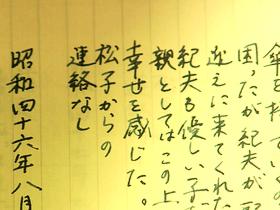 傘を持て
困ったが紀夫が
迎えに来てくれた
紀夫も優しい子だ
親としてはこの上
幸せを感じた。
松子からの
連絡なし
昭和四十六年八月